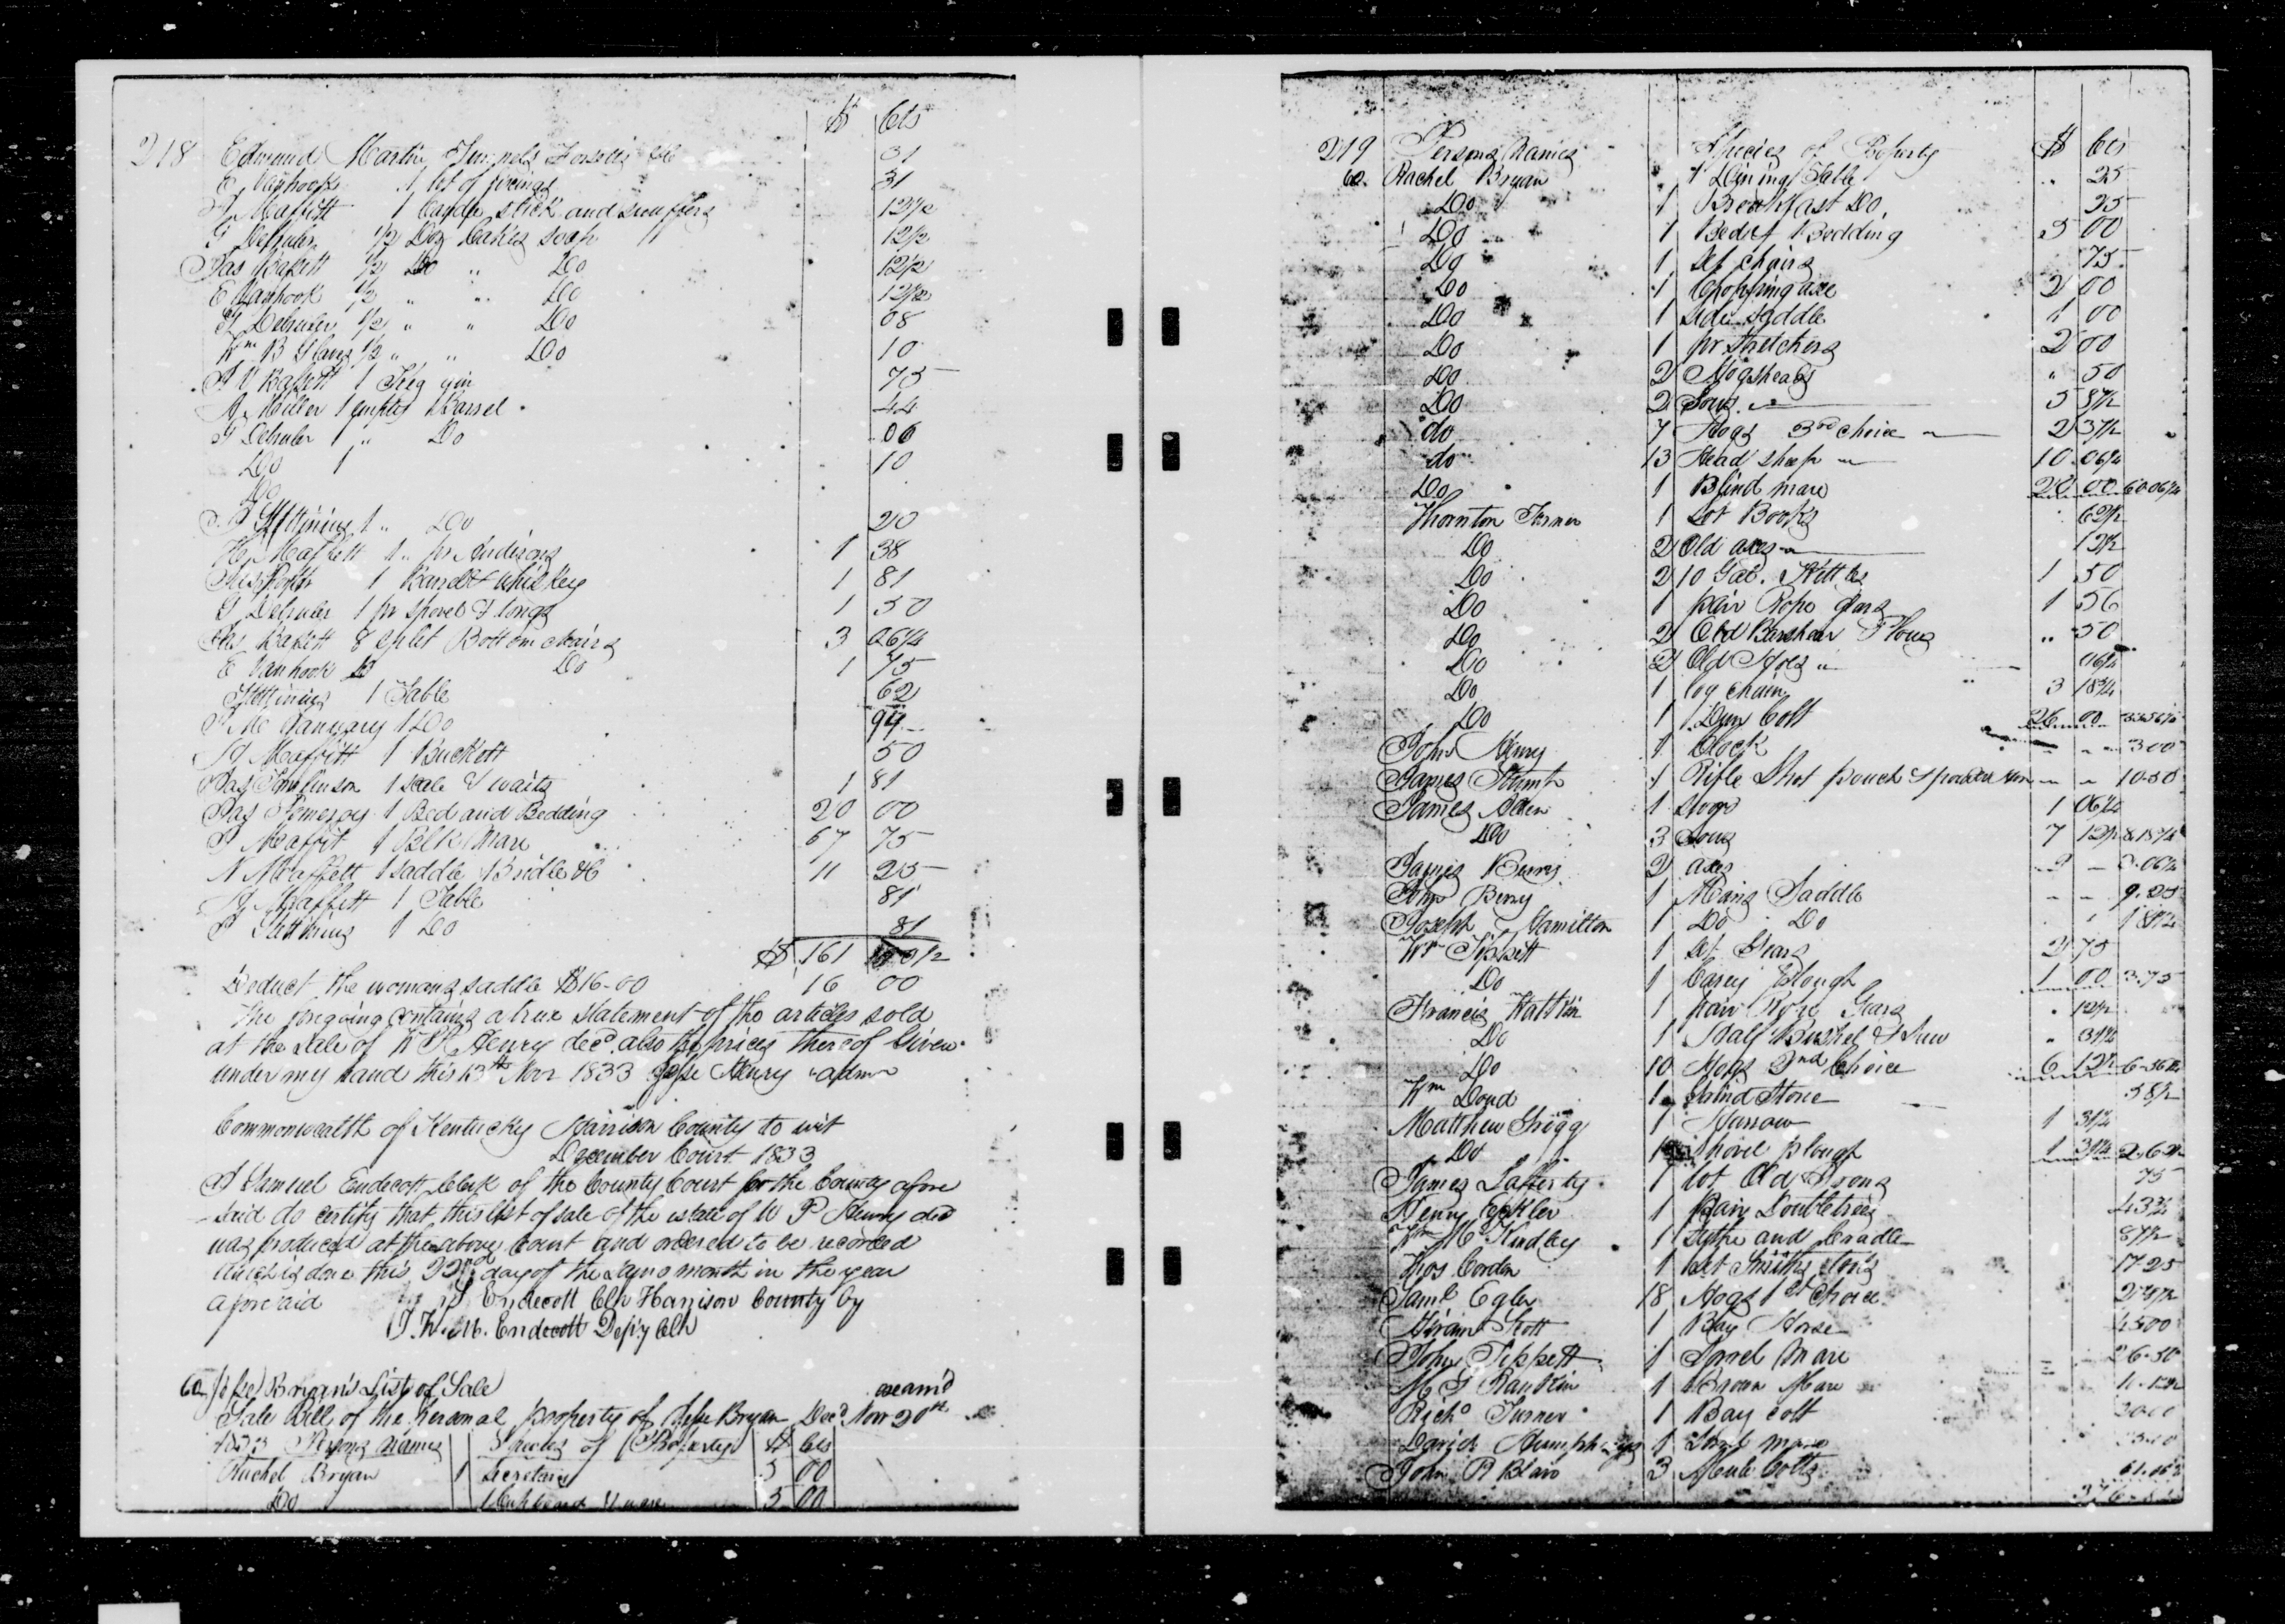 $ Cts
218 Edmund Martin Funnels Faucetts &c 31
E Vanhook 1 lot of fixings 31
H Maffitt 1 Candle stick and snuffers 12 1/2
G Dehuler 1/2 Doz Cakes soap 12 1/2
Jas Bassett 1/2 Do " Do 12 1/2
E Vanhook 1/2 " " Do 12 1/2
G Dehuler 1/2 " " Do 08
Wm B Glaves 1/2 " " Do 10
A V Bassett 1 Keg gin 75
A. Miller 1 empty Barrel 44
G Dehuler 1 " Do 06
Do 1 10
Do
Stettinius 1 " Do 20
H, Maffett 1 " pr Andirons 1 38
1 Barrel & whiskey 1 81
G Dehuler 1 pr shovel & tongs 1 50
Jas Bassett 8 split Bottom chairs 3 06 1/4
E Vanhook Do 1 75
Stettinius 1 Table 62
Mc January 1 Do 94
H Maffitt 1 Buckett 50
Jas Tomlinson 1 scale & waits 1 81
Jas Pomeroy 1 Bed and Bedding 20 00
Maffit 1 Blk Mare 67 75
N Maffett 1 saddle Bridle &c 11 25
H Maffett 1 Table 81
Stettinius 1 Do 81
$ 161 0 1/2
Deduct the womans saddle $16-00 16 00
The foregoing contains a true statement of the articles sold
at the sale of W P. Henry decd. also the prices thereof Given
under my hand this 13th Novr 1833 Jesse Henry admr
Commonwealth of Kentucky Harrison County to wit
December Court 1833
I Samuel Endecott Clerk of the County Court for the County afore
said do certify that this list of sale of the estate of W P Henry decd
was produced at the above Court and ordered to be recorded
which is done this 22nd day of the same month in the year
aforesaid S Endecott Clk Harrison County by
J. W. M. Endecott Depty Clk
60 Jesse Bryan's List of Sale exam'd
Sale Bill of the personal property of Jesse Bryan Decd Novr 20th
1833 Persons names Species of Property $ Cts
Rachel Bryan 1 Secretary 5 00
Do 1 Cupboard & ware 5 00
219 Persons Names Species of Property $ Cts
60. Rachel Bryan 1 Dining Table " 25
Do 1 Breakfast Do. 25
Do 1 Bed & Bedding 5 00
Do 1 Set chairs 75
Do 1 Chopping axe 2 00
Do 1 side saddle 1 00
Do 1 pr Stretchers 2 00
Do 2 Hogsheads " 50
Do 2 Sows 5 87 1/2
do 7 Hogs 3rd choice 2 37 1/2
do 13 Head sheep 10 06 1/4
Do 1 Blind mare 20 00 60 06 1/4
Thornton Turner 1 Lot Books 62 1/2
Do 2 Old axes 12 1/2
Do 2 10 Gal. Kettles 1 50
Do 1 pair Rope gears 1 56
Do 2 Old Barshear Plows " 50
Do 2 Old Hoes " 06 1/4
Do 1 log chain 3 18 3/4
Do 1 Dun Colt 26 00 33.56 1/4
John Henry 1 Clock 3 00
James Stump 1 Rifle Shot pouch & powder horn 10.50
James Allen 1 Hogs 1 06 1/4
Do 3 Sows 7 12 1/2 8.18 3/4
James Berry 2 axes 3.06 1/4
Jno Berry 1 Mans Saddle 9.25
Joseph Hamilton 1 Do Do 1 81 1/4
Wm Tippett 1 set Gears 2 75
Do 1 Carey Plough 1 00 3.75
Francis Hatton 1 pair Rope Gears 12 1/2
Do 1 Half Bushel & Sieve " 31 1/4
Do 10 Hogs 2nd Choice 6 12 1/2 6.56 1/4
Wm Doud 1 Grind Stone 58 1/2
Matthew Grigg 1 Harrow 1 31 1/4
Do 1 shovel plough 1 31 1/4 2.62 1/2
James Lafferty 1 lot Old Irons 75
Henry Eckler 1 pair Doubletrees 43 3/4
Wm McKindley 1 Sythe and Cradle 87 1/2
Thos Corden 1 set Smiths tools 17.25
Saml Egler 18 Hogs 1st Choice
Hiram Scott 1 Bay Horse 45 00
John Tippett 1 Sorrel Mare 26.50
M G Rankin 1 Brown Mare
Richd Turner 1 Bay Colt
David Humphreys 1 Sorrel mare
John R Blair 3 Mule Colts